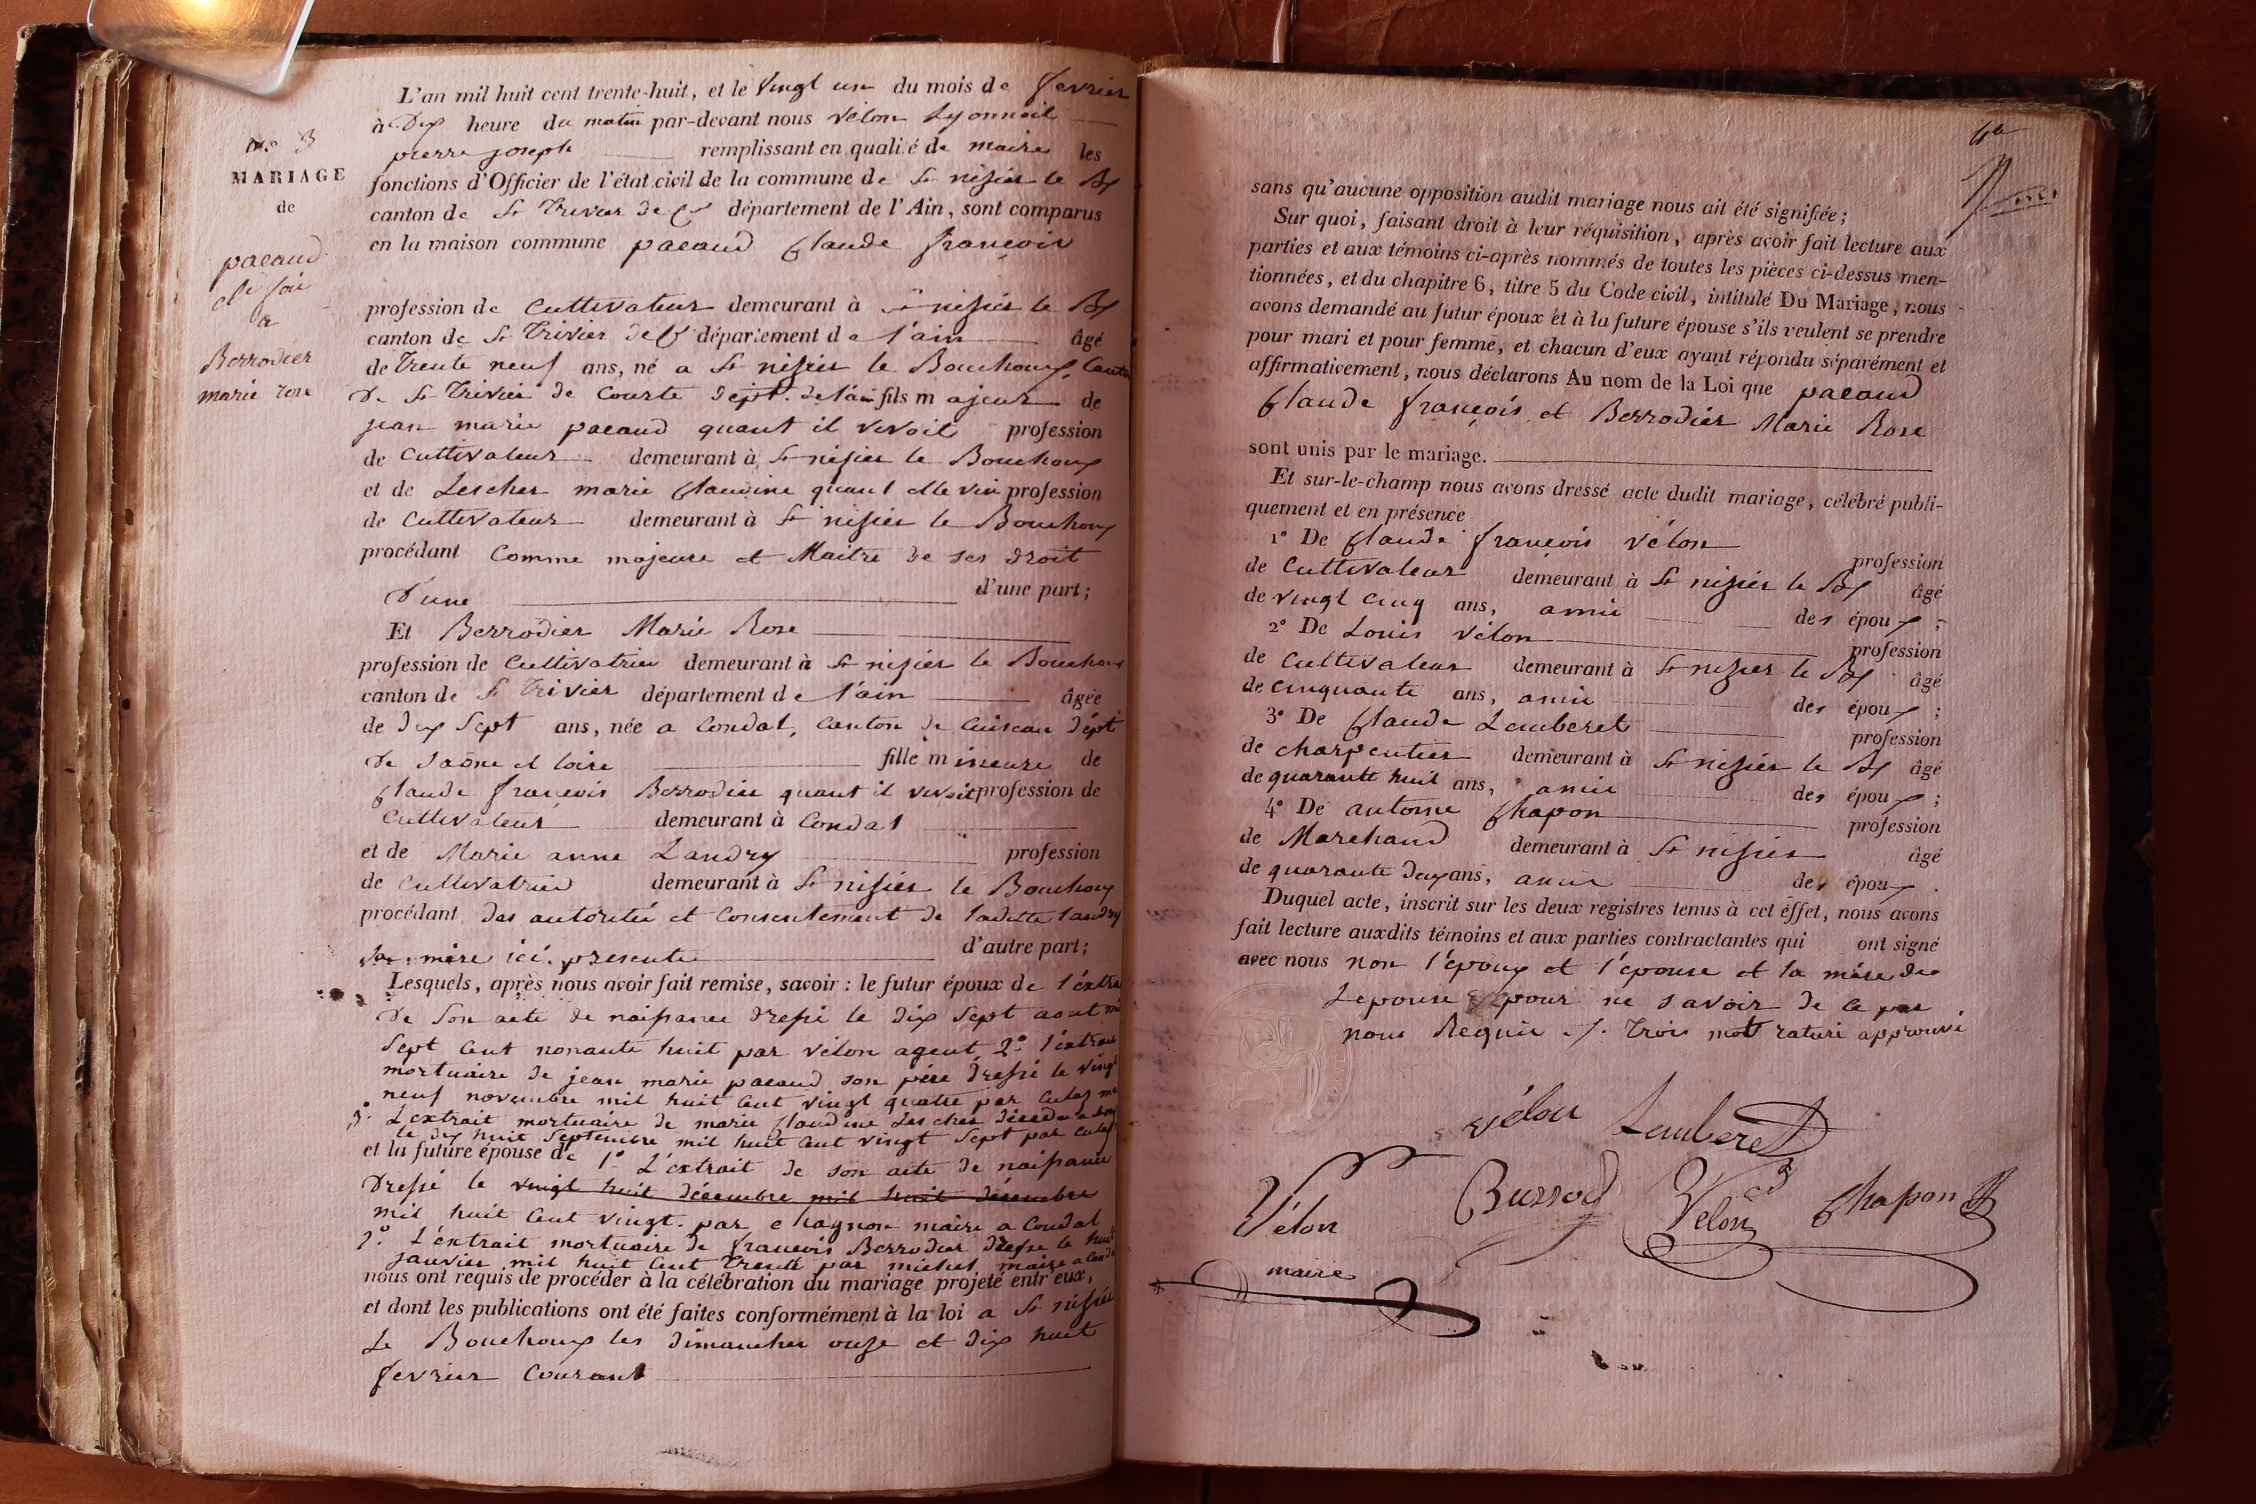 L'an mil huit cent trente-huit, et le vingt un du mois de fevrier
à Dix heure du matin par-devant nous vélon Lyonnois
pierre joseph remplissant en qualité de maire les
fonctions d'Officier de l'état civil de la commune de St nizier le Bx
canton de St Trivier de Cs département de l'Ain, sont comparus
en la maison commune pacaud Claude françois
No 3
MARIAGE
de
pacaud
cde foie
a
Berrodier
marie rose
profession de Cultivateur demeurant à St nizier le Bx
canton de St Trivier de Cs département de l'ain âgé
de Trente neuf ans, né a St nizier le Bouchoux, Canton
De St Trivier de Courte Dépt. de l'ain fils majeur de
jean marie pacaud quant il vivoit profession
de Cultivateur demeurant à St nizier le Bouchoux
et de Lescher marie Claudine quant elle viv profession
de Cultivateur demeurant à St nizier le Bouchoux
procédant Comme majeure et Maitre de ses droit
D'une d'une part;
Et Berrodier Marie Rose
profession de Cultivatrice demeurant à St nizier le Bouchoux
canton de St Trivier département de l'ain âgée
de dix Sept ans, née a Condal, Canton de Cuiseau Dépt
De Saône et loire fille mineure de
Claude françois Berrodier quant il vivoit profession de
Cultivateur demeurant à Condal
et de Marie anne Landry profession
de Cultivatrice demeurant à St nizier le Bouchoux
procédant des autorité et Consentement de ladette landry
sa mère ici presente d'autre part;
Lesquels, après nous avoir fait remise, savoir : le futur époux de l'éxtrai
De Son acte de naissance dressé le dix Sept aout mil
Sept Cent nonante huit par vélon agent 2o l'éxtrait
mortuaire de jean marie pacaud son père dressé le vingt
neuf novembre mil huit Cent vingt quatre par Culas
3o L'extrait mortuaire de marie Claudine Lescher
le dix huit Septembre mil huit Cent vingt Sept par Culas
et la future épouse de 1o L'extrait de son acte de naissance
Dressé le vingt huit décembre mil huit décembre
mil huit Cent vingt. par Chagnon maire a Condal
2o L'éxtrait mortuaire de françois Berrodier dressé le huit
janvier mil huit Cent Trente par michel maire a Condal
nous ont requis de procéder à la célébration du mariage projeté entr'eux,
et dont les publications ont été faites conformément à la loi a St nizier
Le Bouchoux les dimanches onze et dix huit
fevrier Courant
sans qu'aucune opposition audit mariage nous ait été signifiée;
Sur quoi, faisant droit à leur réquisition, après avoir fait lecture aux
parties et aux témoins ci-après nommés de toutes les pièces ci-dessus men-
tionnées, et du chapitre 6, titre 5 du Code civil, intitulé Du Mariage, nous
avons demandé au futur époux et à la future épouse s'ils veulent se prendre
pour mari et pour femme, et chacun d'eux ayant répondu séparément et
affirmativement, nous déclarons Au nom de la Loi que pacaud
Claude françois et Berrodier Marie Rose
sont unis par le mariage.
Et sur-le-champ nous avons dressé acte dudit mariage, célébré publi-
quement et en présence
1o De Claude françois vélon profession
de Cultivateur demeurant à St nizier le Bx âgé
de vingt cinq ans, amie des époux;
2o De Louis vélon profession
de Cultivateur demeurant à St nizier le Bx âgé
de cinquante ans, amie des époux;
3o De Claude Lemberet profession
de charpentier demeurant à St nizier le Bx âgé
de quarante huit ans, amie des époux;
4o De antoine Chapon profession
de Marchand demeurant à St nizier âgé
de quarante deux ans, amie des époux.
Duquel acte, inscrit sur les deux registres tenus à cet éffet, nous avons
fait lecture auxdits témoins et aux parties contractantes qui ont signé
avec nous non l'époux et l'épouse et la mère de
Lepouse pour ne savoir de ce par
nous Requie ./. Trois mot raturé approuvé
vélon Lemberet
Vélon Burrod Velon Chapon
maire